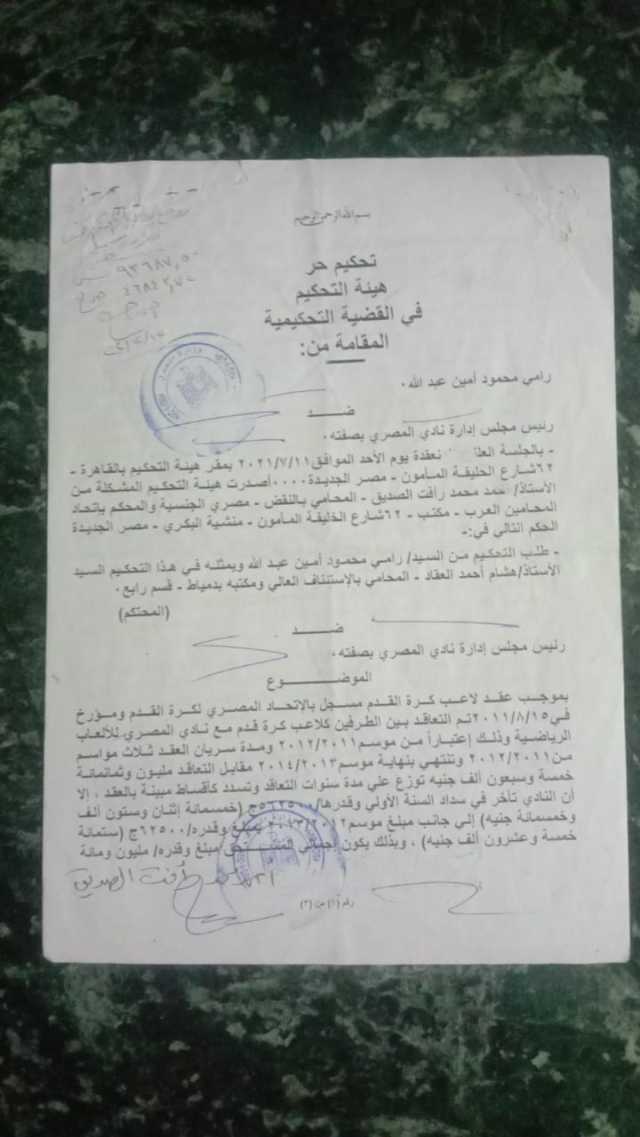 بسم الله الرحمن الرحيم
تحكيم حر
هيئة التحكيم
في القضية التحكيمية
المقامة من:
٩٣٦٨٧,٥٠
رامي محمود أمين عبد الله .
ضــــــد
رئيس مجلس إدارة نادي المصري بصفته .
- بالجلسة نعقدة يوم الأحد الموافق ٢٠٢١/٧/١١ بمقر هيئة التحكيم بالقاهرة -
٦٢ شارع الخليفة المأمون - مصر الجديدة ٠٠٠٠ أصدرت هيئة التحكيم المشكلة من
الأستاذ/ أحمد محمد رأفت الصديق - المحامي بالنقض - مصري الجنسية والمحكم بإتحاد
المحامين العرب - مكتب - ٦٢ شارع الخليفة المأمون - منشية البكري - مصر الجديدة
الحكم التالي في:-
- طلب التحكيم من السيد/ رامي محمود أمين عبد الله ويمثله في هذا التحكيم السيد
الأستاذ/ هشام أحمد العقاد - المحامي بالإستئناف العالي ومكتبه بدمياط - قسم رابع .
(المحتكم)
ضــــــد
رئيس مجلس إدارة نادي المصري بصفته .
الموضــــــــوع
بموجب عقد لاعب كرة القدم مسجل بالإتحاد المصري لكرة القدم ومؤرخ
في ٢٠١١/٨/١٥ تم التعاقد بين الطرفين كلاعب كرة قدم مع نادي المصري للألعاب
الرياضية وذلك إعتباراً من موسم ٢٠١٢/٢٠١١ ومدة سريان العقد ثلاث مواسم
من ٢٠١٢/٢٠١١ وتنتهي بنهاية موسم ٢٠١٤/٢٠١٣ مقابل التعاقد مليون وثمانمائة
خمسة وسبعون ألف جنيه توزع علي مدة سنوات التعاقد وتسدد كأقساط مبينة بالعقد . إلا
أن النادي تأخر في سداد السنة الأولي وقدرها/ ٥٦٢٥٠٠ج (خمسمائة إثنان وستون ألف
وخمسمائة جنيه) إلي جانب مبلغ موسم وقدره/ (ستمائة
خمسة وعشرون ألف جنيه) . وبذلك يكون إجمالي مبلغ وقدره/ مليون ومائة
رأفت الصديق
رقم (١) من (٣)